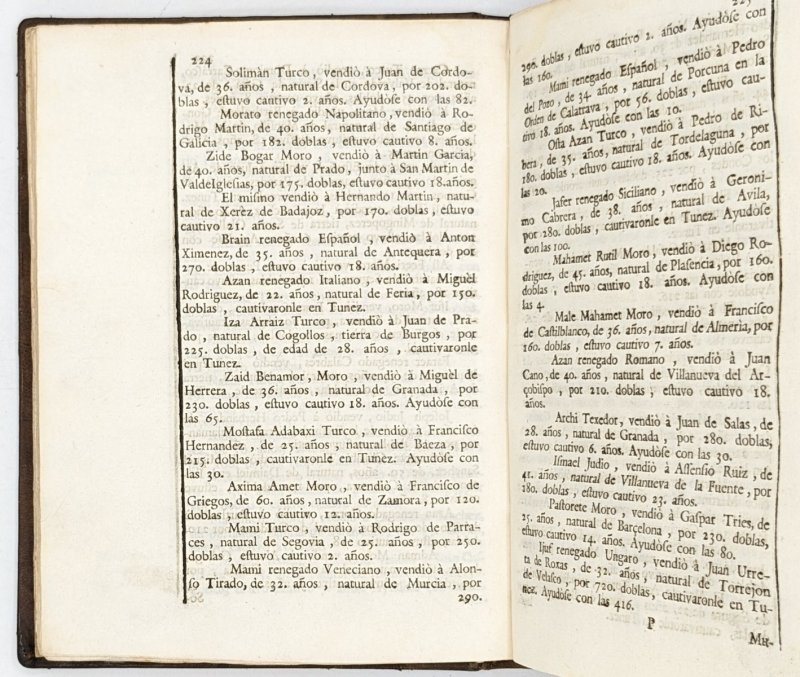 224
Solimàn Turco, vendiò à Juan de Cordo-
va, de 36. años, natural de Cordova, por 202. do-
blas, eſtuvo cautivo 2. años. Ayudòſe con las 82.
Morato renegado Napolitano, vendiò à Ro-
drigo Martin, de 40. años, natural de Santiago de
Galicia, por 182. doblas, eſtuvo cautivo 8. años.
Zide Bogar Moro, vendiò à Martin Garcia,
de 40. años, natural de Prado, junto à San Martin de
ValdeIgleſias, por 175. doblas, eſtuvo cautivo 18. años.
El miſmo vendiò à Hernando Martin, natu-
ral de Xerèz de Badajoz, por 170. doblas, eſtuvo
cautivo 21. años.
Brain renegado Eſpañol, vendiò à Anton
Ximenez, de 35. años, natural de Antequera, por
270. doblas, eſtuvo cautivo 18. años.
Azan renegado Italiano, vendiò à Miguèl
Rodriguez, de 22. años, natural de Feria, por 150.
doblas, cautivaronle en Tunez.
Iza Arraiz Turco, vendiò à Juan de Pra-
do, natural de Cogollos, tierra de Burgos, por
225. doblas, de edad de 28. años, cautivaronle
en Tunez.
Zaid Benamor, Moro, vendiò à Miguèl de
Herrera, de 36. años, natural de Granada, por
230. doblas, eſtuvo cautivo 18. años. Ayudòſe con
las 65.
Moſtafa Adabaxi Turco, vendiò à Franciſco
Hernandez, de 25. años, natural de Baeza, por
215. doblas, cautivaronle en Tunez. Ayudòſe con
las 30.
Axima Amet Moro, vendiò à Franciſco de
Griegos, de 60. años, natural de Zamora, por 120.
doblas eſtuvo cautivo 12. años.
Mami Turco, vendiò à Rodrigo de Parra-
ces, natural de Segovia, de 25. años, por 250.
doblas, eſtuvo cautivo 2. años.
Mami renegado Veneciano, vendiò à Alon-
ſo Tirado, de 32. años, natural de Murcia, por
290.
290. doblas, eſtuvo cautivo 2. años. Ayudòſe con
las 160.
Mami renegado Eſpañol, vendiò à Pedro
del Pozo, de 34. años, natural de Porcuna en la
Orden de Calatrava, por 56. doblas, eſtuvo cau-
tivo 18. años. Ayudòſe con las 10.
Oſta Azan Turco, vendiò à Pedro de Ri-
bera, de 35. años, natural de Tordelaguna, por
180. doblas, eſtuvo cautivo 18. años. Ayudòſe con
las 20.
Jafer renegado Siciliano, vendiò à Geroni-
mo Cabrera, de 38. años, natural de Avila,
por 280. doblas, cautivaronle en Tunez. Ayudòſe
con las 100.
Mahamet Rutil Moro, vendiò à Diego Ro-
driguez, de 45. años, natural de Plaſencia, por 160.
doblas, eſtuvo cautivo 18. años. Ayudòſe con
las 4.
Male Mahamet Moro, vendiò à Franciſco
de Caſtilblanco, de 36. años, natural de Almeria, por
160. doblas, eſtuvo cautivo 7. años.
Azan renegado Romano, vendiò à Juan
Cano, de 40. años, natural de Villanueva del Ar-
çobiſpo, por 210. doblas, eſtuvo cautivo 18.
años.
Archi Texedor, vendiò à Juan de Salas, de
28. años, natural de Granada, por 280. doblas,
eſtuvo cautivo 6. años. Ayudòſe con las 30.
Iſmael Judio, vendiò à Aſſenſio Ruiz, de
41. años, natural de Villanueva de la Fuente, por
180. doblas, eſtuvo cautivo 23. años.
Paſtorete Moro, vendiò à Gaſpar Tries, de
25. años, natural de Barcelona, por 230. doblas,
eſtuvo cautivo 14. años. Ayudòſe con las 80.
Ijuf renegado Ungaro, vendiò à Juan Urre-
ta de Roxas, de 32. años, natural de Torrejon
de Velaſco, por 720. doblas, cautivaronle en Tu-
nez. Ayudòſe con las 416.
P
Mu-